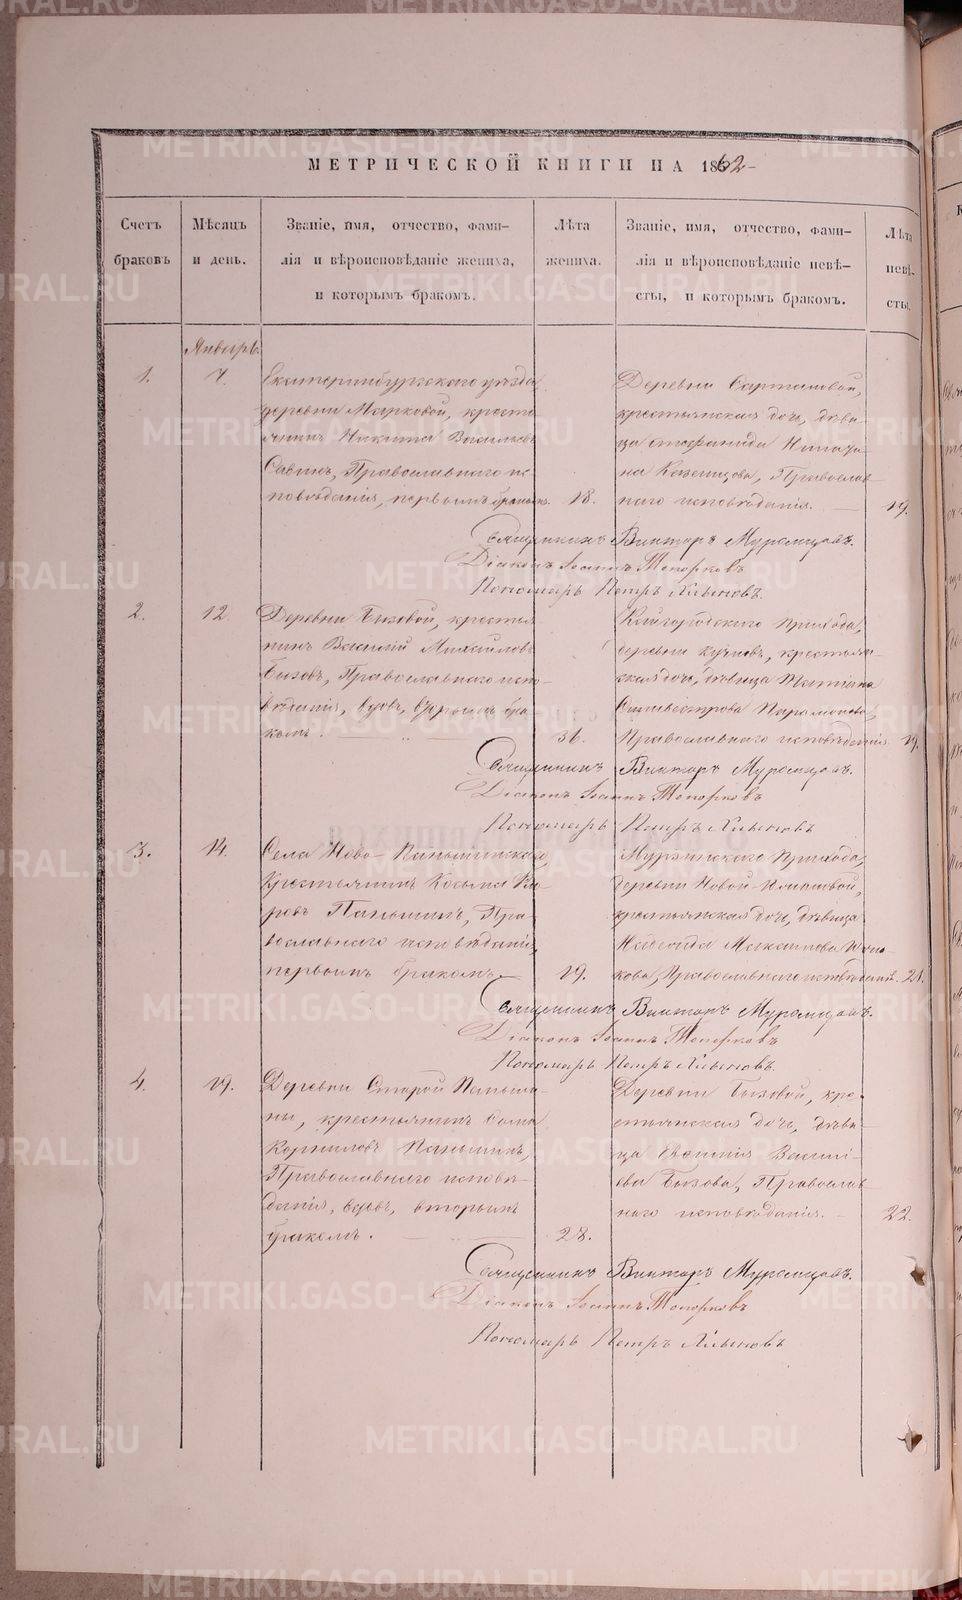 МЕТРИЧЕСКОЙ КНИГИ НА 1862
Счетъ браковъ
Мѣсяцъ и день.
Званіе, имя, отчество, фами-
лія и вѣроисповѣданіе жениха,
и которымъ бракомъ.
Лѣта жениха.
Званіе, имя, отчество, фами-
лія и вѣроисповѣданіе невѣ-
сты, и которымъ бракомъ.
Лѣта невѣ-
сты.
Январь.
1.
7.
Екатеринбургскаго уѣзда
деревни Марковой, кресть
янинъ Никита Васильевъ
Савинъ, Православнаго ис
повѣданія, первымъ бракомъ.
18.
Деревни
крестьянская дочь, дѣви
ца Стефанида
на Казанцова, Православ
наго исповѣданія.
19.
Священникъ Викторъ Муромцовъ.
Діаконъ Іоаннъ Топорковъ
Пономарь Петръ Хлыновъ.
2.
12.
Деревни Бызовой, крестья
нинъ Василій Михайловъ
Бызовъ, Православнаго испо-
вѣданія, вдовъ, вторымъ бра
комъ.
36.
Кайгородскаго прихода,
деревни крестьян-
ская дочь, дѣвица Татіана
Сильвестрова Парамонова,
Православнаго исповѣданія
19.
Священникъ Викторъ Муромцовъ.
Діаконъ Іоаннъ Топорковъ
Пономарь Петръ Хлыновъ
3.
14.
Села Ново-Паньшинскаго,
крестьянинъ Косьма
Паньшинъ, Пра-
вославнаго исповѣданія,
первымъ бракомъ.
19.
Мурзинскаго Прихода,
деревни Новой
крестьянская дочь, дѣвица
Надежда
кова, Православнаго исповѣданія.
21.
Священникъ Викторъ Муромцовъ.
Діаконъ Іоаннъ Топорковъ
Пономарь Петръ Хлыновъ.
4.
19.
Деревни Старой Паньши-
ны, крестьянинъ Фома
Корниловъ Паньшинъ,
Православнаго исповѣ-
данія, вдовъ, вторымъ
бракомъ.
28.
Деревни Бызовой, кре-
стьянская дочь, дѣви-
ца Евфимія Василі-
ева Бызова, Православ
наго исповѣданія.
22.
Священникъ Викторъ Муромцовъ.
Діаконъ Іоаннъ Топорковъ
Пономарь Петръ Хлыновъ
METRIKI.GASO-URAL.RU